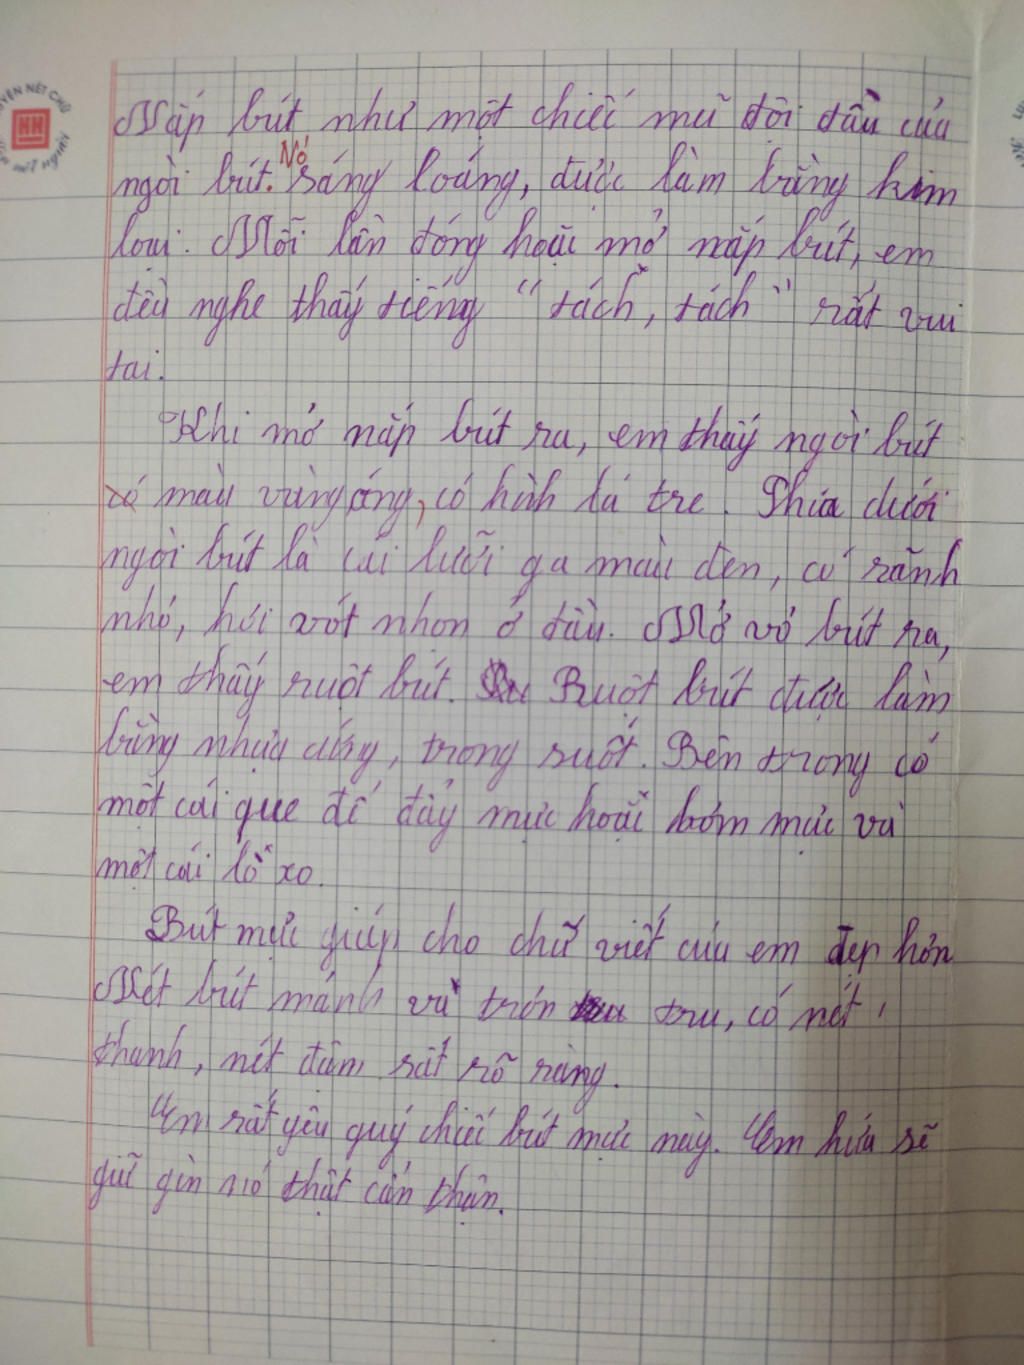 Nắp bút như một chiếc mũ đội đầu của
ngòi bút. Nó sáng loáng, được làm bằng kim
loại. Mỗi lần đóng hoặc mở nắp bút, em
đều nghe thấy tiếng “tách, tách” rất vui
tai.
Khi mở nắp bút ra, em thấy ngòi bút
có màu vàng óng, có hình lá tre. Phía dưới
ngòi bút là cái lưỡi gà màu đen, có rãnh
nhỏ, hơi vót nhọn ở đầu. Mở vỏ bút ra,
em thấy ruột bút. Ruột bút được làm
bằng nhựa cứng, trong suốt. Bên trong có
một cái que để đẩy mực hoặc bơm mực và
một cái lò xo.
Bút mực giúp cho chữ viết của em đẹp hơn
Nét bút mảnh và tròn tru, có nét
thanh, nét đậm rất rõ ràng.
Em rất yêu quý chiếc bút mực này. Em hứa sẽ
giữ gìn nó thật cẩn thận.
NÉT CHỮ
NẾT NGƯỜI